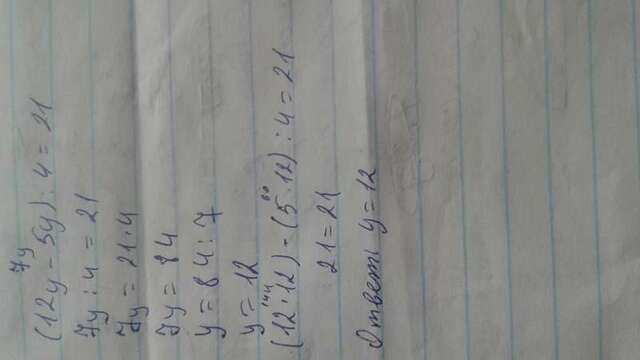 7y
(12y - 5y) : 4 = 21
7y : 4 = 21
7y = 21·4
7y = 84
y = 84 : 7
y = 12
144 60
(12·12) - (5·12) : 4 = 21
21 = 21
Ответ: y = 12